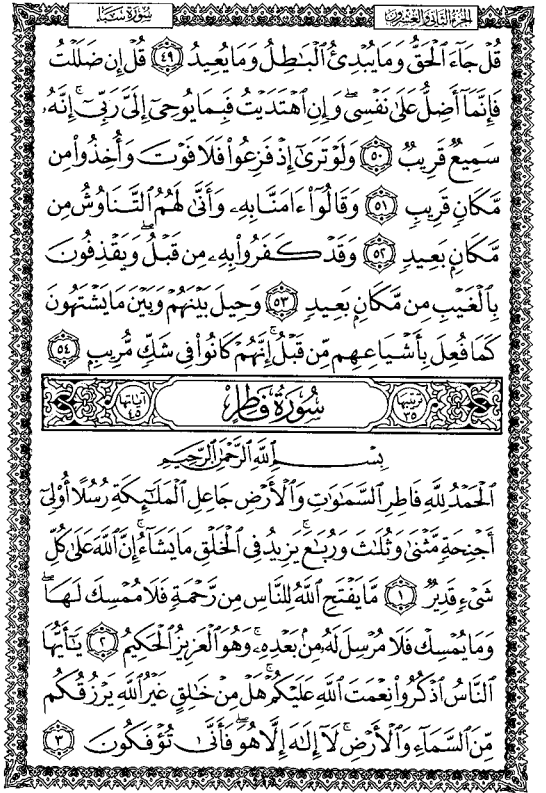 الجزء الثاني والعشرون
سورة سبأ
قُلْ جَآءَ ٱلْحَقُّ وَمَا يُبْدِئُ ٱلْبَٰطِلُ وَمَا يُعِيدُ ٤٩ قُلْ إِن ضَلَلْتُ
فَإِنَّمَآ أَضِلُّ عَلَىٰ نَفْسِى ۖ وَإِنِ ٱهْتَدَيْتُ فَبِمَا يُوحِىٓ إِلَىَّ رَبِّىٓ ۚ إِنَّهُۥ
سَمِيعٌ قَرِيبٌ ٥٠ وَلَوْ تَرَىٰٓ إِذْ فَزِعُوا۟ فَلَا فَوْتَ وَأُخِذُوا۟ مِن
مَّكَانٍ قَرِيبٍ ٥١ وَقَالُوٓا۟ ءَامَنَّا بِهِۦ وَأَنَّىٰ لَهُمُ ٱلتَّنَاوُشُ مِن
مَّكَانٍۭ بَعِيدٍ ٥٢ وَقَدْ كَفَرُوا۟ بِهِۦ مِن قَبْلُ ۖ وَيَقْذِفُونَ
بِٱلْغَيْبِ مِن مَّكَانٍۭ بَعِيدٍ ٥٣ وَحِيلَ بَيْنَهُمْ وَبَيْنَ مَا يَشْتَهُونَ
كَمَا فُعِلَ بِأَشْيَاعِهِم مِّن قَبْلُ ۚ إِنَّهُمْ كَانُوا۟ فِى شَكٍّ مُّرِيبٍۭ ٥٤
ترتيبها ٣٥ سُورَةُ فَاطِرٍ آياتها ٤٥
بِسْمِ ٱللَّهِ ٱلرَّحْمَٰنِ ٱلرَّحِيمِ
ٱلْحَمْدُ لِلَّهِ فَاطِرِ ٱلسَّمَٰوَٰتِ وَٱلْأَرْضِ جَاعِلِ ٱلْمَلَٰٓئِكَةِ رُسُلًا أُو۟لِىٓ
أَجْنِحَةٍ مَّثْنَىٰ وَثُلَٰثَ وَرُبَٰعَ ۚ يَزِيدُ فِى ٱلْخَلْقِ مَا يَشَآءُ ۚ إِنَّ ٱللَّهَ عَلَىٰ كُلِّ
شَىْءٍ قَدِيرٌ ١ مَّا يَفْتَحِ ٱللَّهُ لِلنَّاسِ مِن رَّحْمَةٍ فَلَا مُمْسِكَ لَهَا ۖ
وَمَا يُمْسِكْ فَلَا مُرْسِلَ لَهُۥ مِنۢ بَعْدِهِۦ ۚ وَهُوَ ٱلْعَزِيزُ ٱلْحَكِيمُ ٢ يَٰٓأَيُّهَا
ٱلنَّاسُ ٱذْكُرُوا۟ نِعْمَتَ ٱللَّهِ عَلَيْكُمْ ۚ هَلْ مِنْ خَٰلِقٍ غَيْرُ ٱللَّهِ يَرْزُقُكُم
مِّنَ ٱلسَّمَآءِ وَٱلْأَرْضِ ۚ لَآ إِلَٰهَ إِلَّا هُوَ ۖ فَأَنَّىٰ تُؤْفَكُونَ ٣